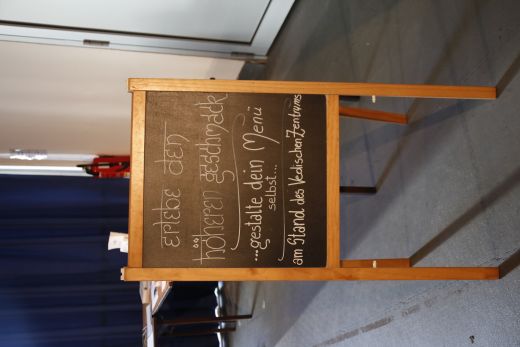 erlebe den
höheren geschmack
...gestalte dein Menü
selbst...
am Stand des Vedischen Zentrums